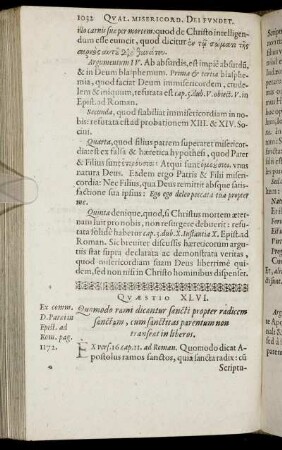 1032 QVAL. MISERICORD. DEI FVNDET.
tio carnis sue per mortem. quod de Christo intelligen-
dum esse euincit, quod dicitur ἐν τῷ σώματι τῆς
σαρκὸς αὐτοῦ διὰ θανάτου.
Argumentum IV. Ab absurdis, est impiū absurdū,
& in Deum blasphemum. Prima & tertia blasphe-
mia, quod faciat Deum immisericordem, crude-
lem & iniquum, refutata est cap. 5. dub. V. obiect. V. in
Epist. ad Roman.
Secunda, quod stabiliat immisericordiam in no-
bis: refutata est ad probationem XIII. & XIV. So-
cini.
Quarta, quod filius patrem superaret misericor-
dia: est ex falsa & hæretica hypothesi, quod Pater
& Filius sunt Atqui sunt vna
natura Deus. Eadem ergo Patris & Filii miseri-
cordia: Nec Filius, qua Deus remittit absque satis-
factione sua ipsius: Ego ego deleo peccata tua propter
me.
Quinta denique, quod, si Christus mortem æter-
nam luit pro nobis, non resurgere debuerit: re-
futata solidè habetur cap. 5. dub. X. Instantia X. Epist. ad
Roman. Sic breuiter discussis hæreticorum argu-
tiis stat supra declarata ac demonstrata veritas,
quod misericordiam suam Deus liberrimè qui-
dem, sed non nisi in Christo hominibus dispenset.
QVÆSTIO XLVI.
Quomodo rami dicantur sancti propter radicem
sanctam, cum sanctitas parentum non
transeat in liberos.
Ex comm.
D. Parei in
Epist. ad
Rom. pag.
1172.
EX vers. 16. cap. 11. ad Roman. Quomodo dicat A-
postolus ramos sanctos, quia sancta radix: cū
Scriptu-